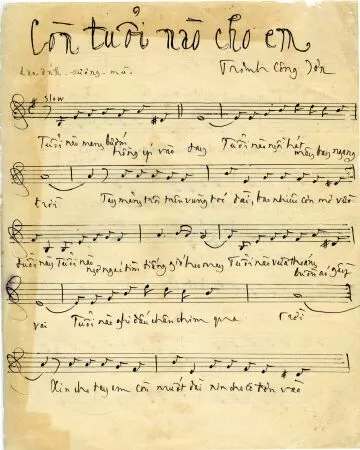 Còn tuổi nào cho em
Trịnh Công Sơn
slow
Tuổi nào mang bướm
trông
vào
Tuổi nào ngồi hát
mây bay ngang
trời
Tay măng trôi trên vùng tóc dài, bao nhiêu cơn mơ vào
tuổi này Tuổi nào
ngơ ngác tìm tiếng gió heo may Tuổi nào vừa thoáng
buồn áo gầy
vai Tuổi nào ghi dấu chân chim qua
trời
Xin cho tay em còn muốt dài xin cho cô đơn vào